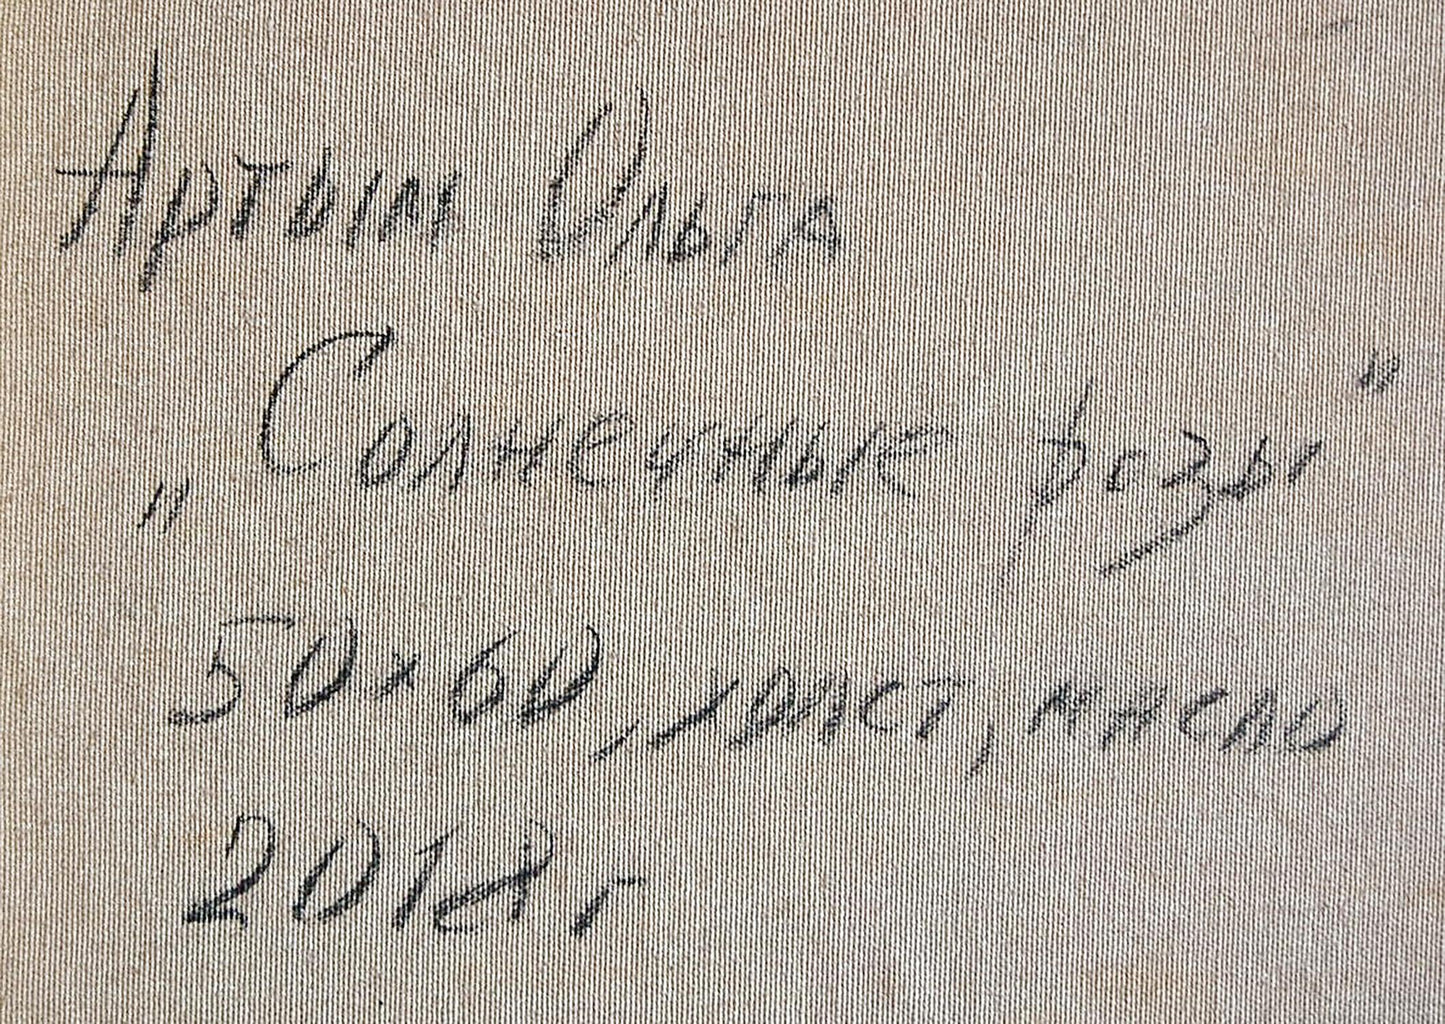 Артым Ольга
„Солнечные розы"
50х60, холст, масло
2018г